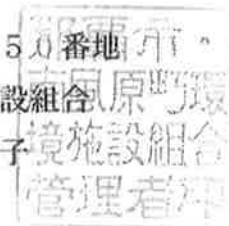 50番地
設組合
子
那覇市・
南風原町環
境施設組合
管理者